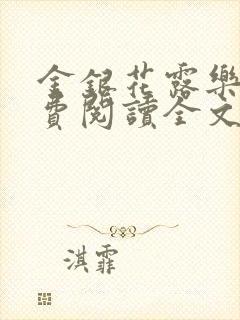 金銀花露樂
費閱讀全文
淇霏